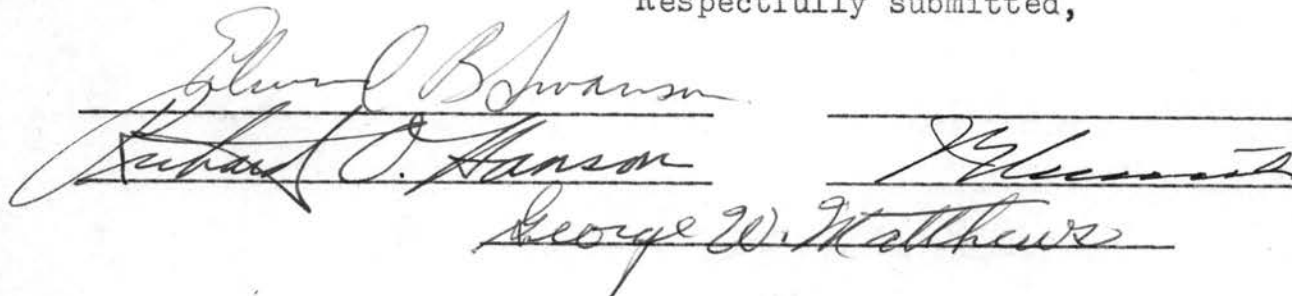 Respectfully submitted,
Edward B Swanson
Richard O. Hanson
George W. Matthews